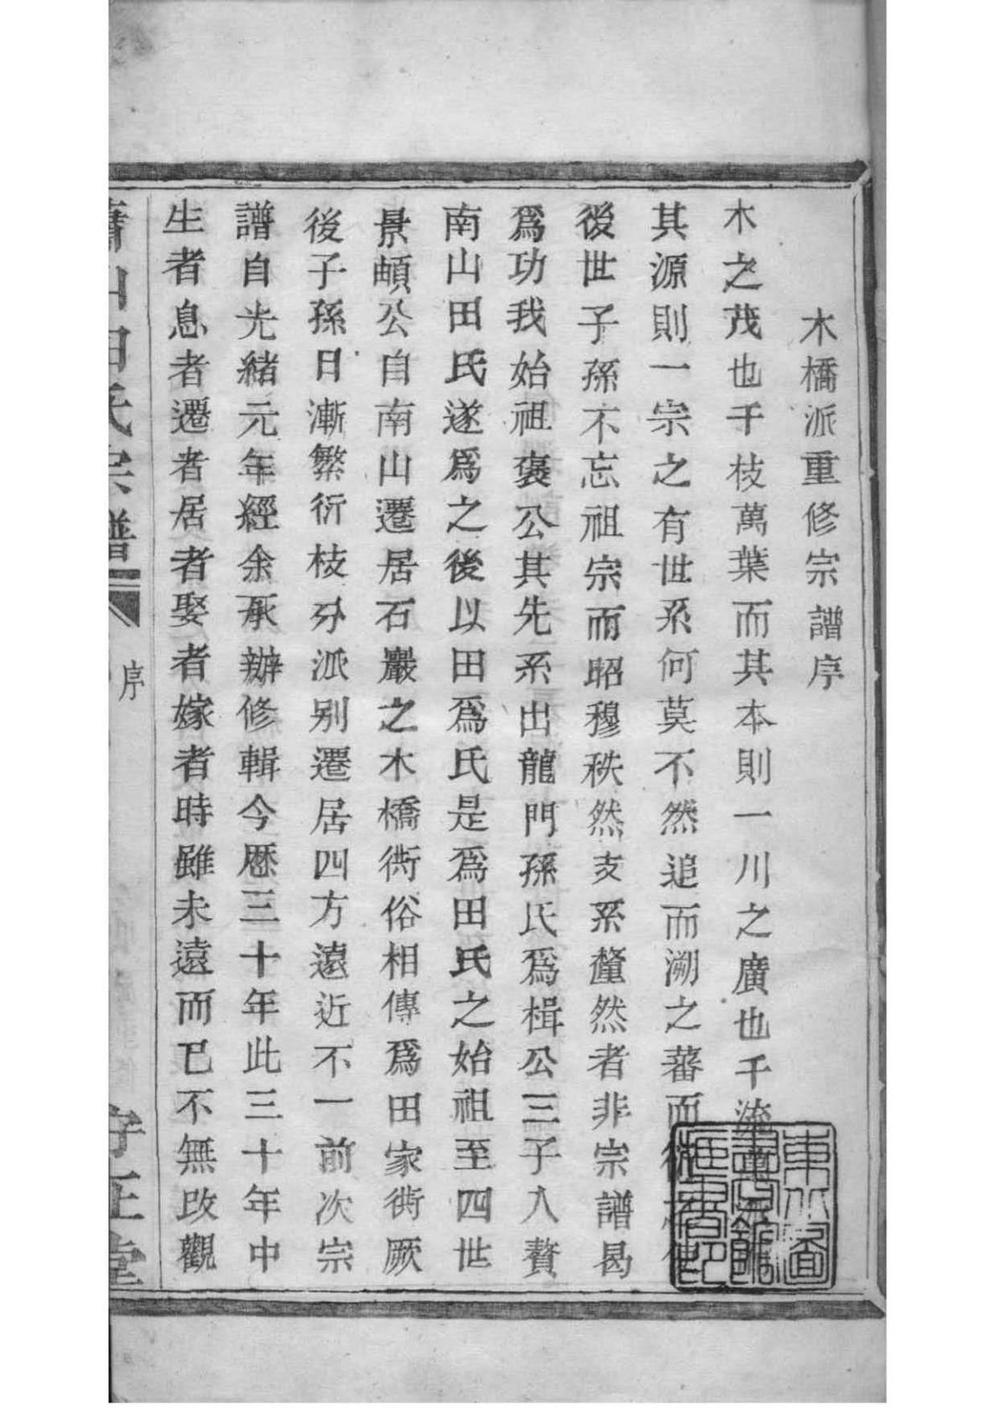 木橋派重修宗譜序
木之茂也千枝萬葉而其本則一川之廣也千流
其源則一宗之有世系何莫不然追而溯之蕃而
後世子孫不忘祖宗而昭穆秩然支系釐然者非宗譜曷
爲功我始祖裦公其先系出龍門孫氏爲楫公三子入贅
南山田氏遂爲之後以田爲氏是爲田氏之始祖至四世
景頔公自南山遷居石巖之木橋衖俗相傳爲田家衖厥
後子孫日漸繁衍枝分派别遷居四方遠近不一前次宗
譜自光緒元年經余承辦修輯今歷三十年此三十年中
生者息者遷者居者娶者嫁者時雖未遠而已不無改觀
蕭山田氏宗譜
序
守正堂
東北圖
書館